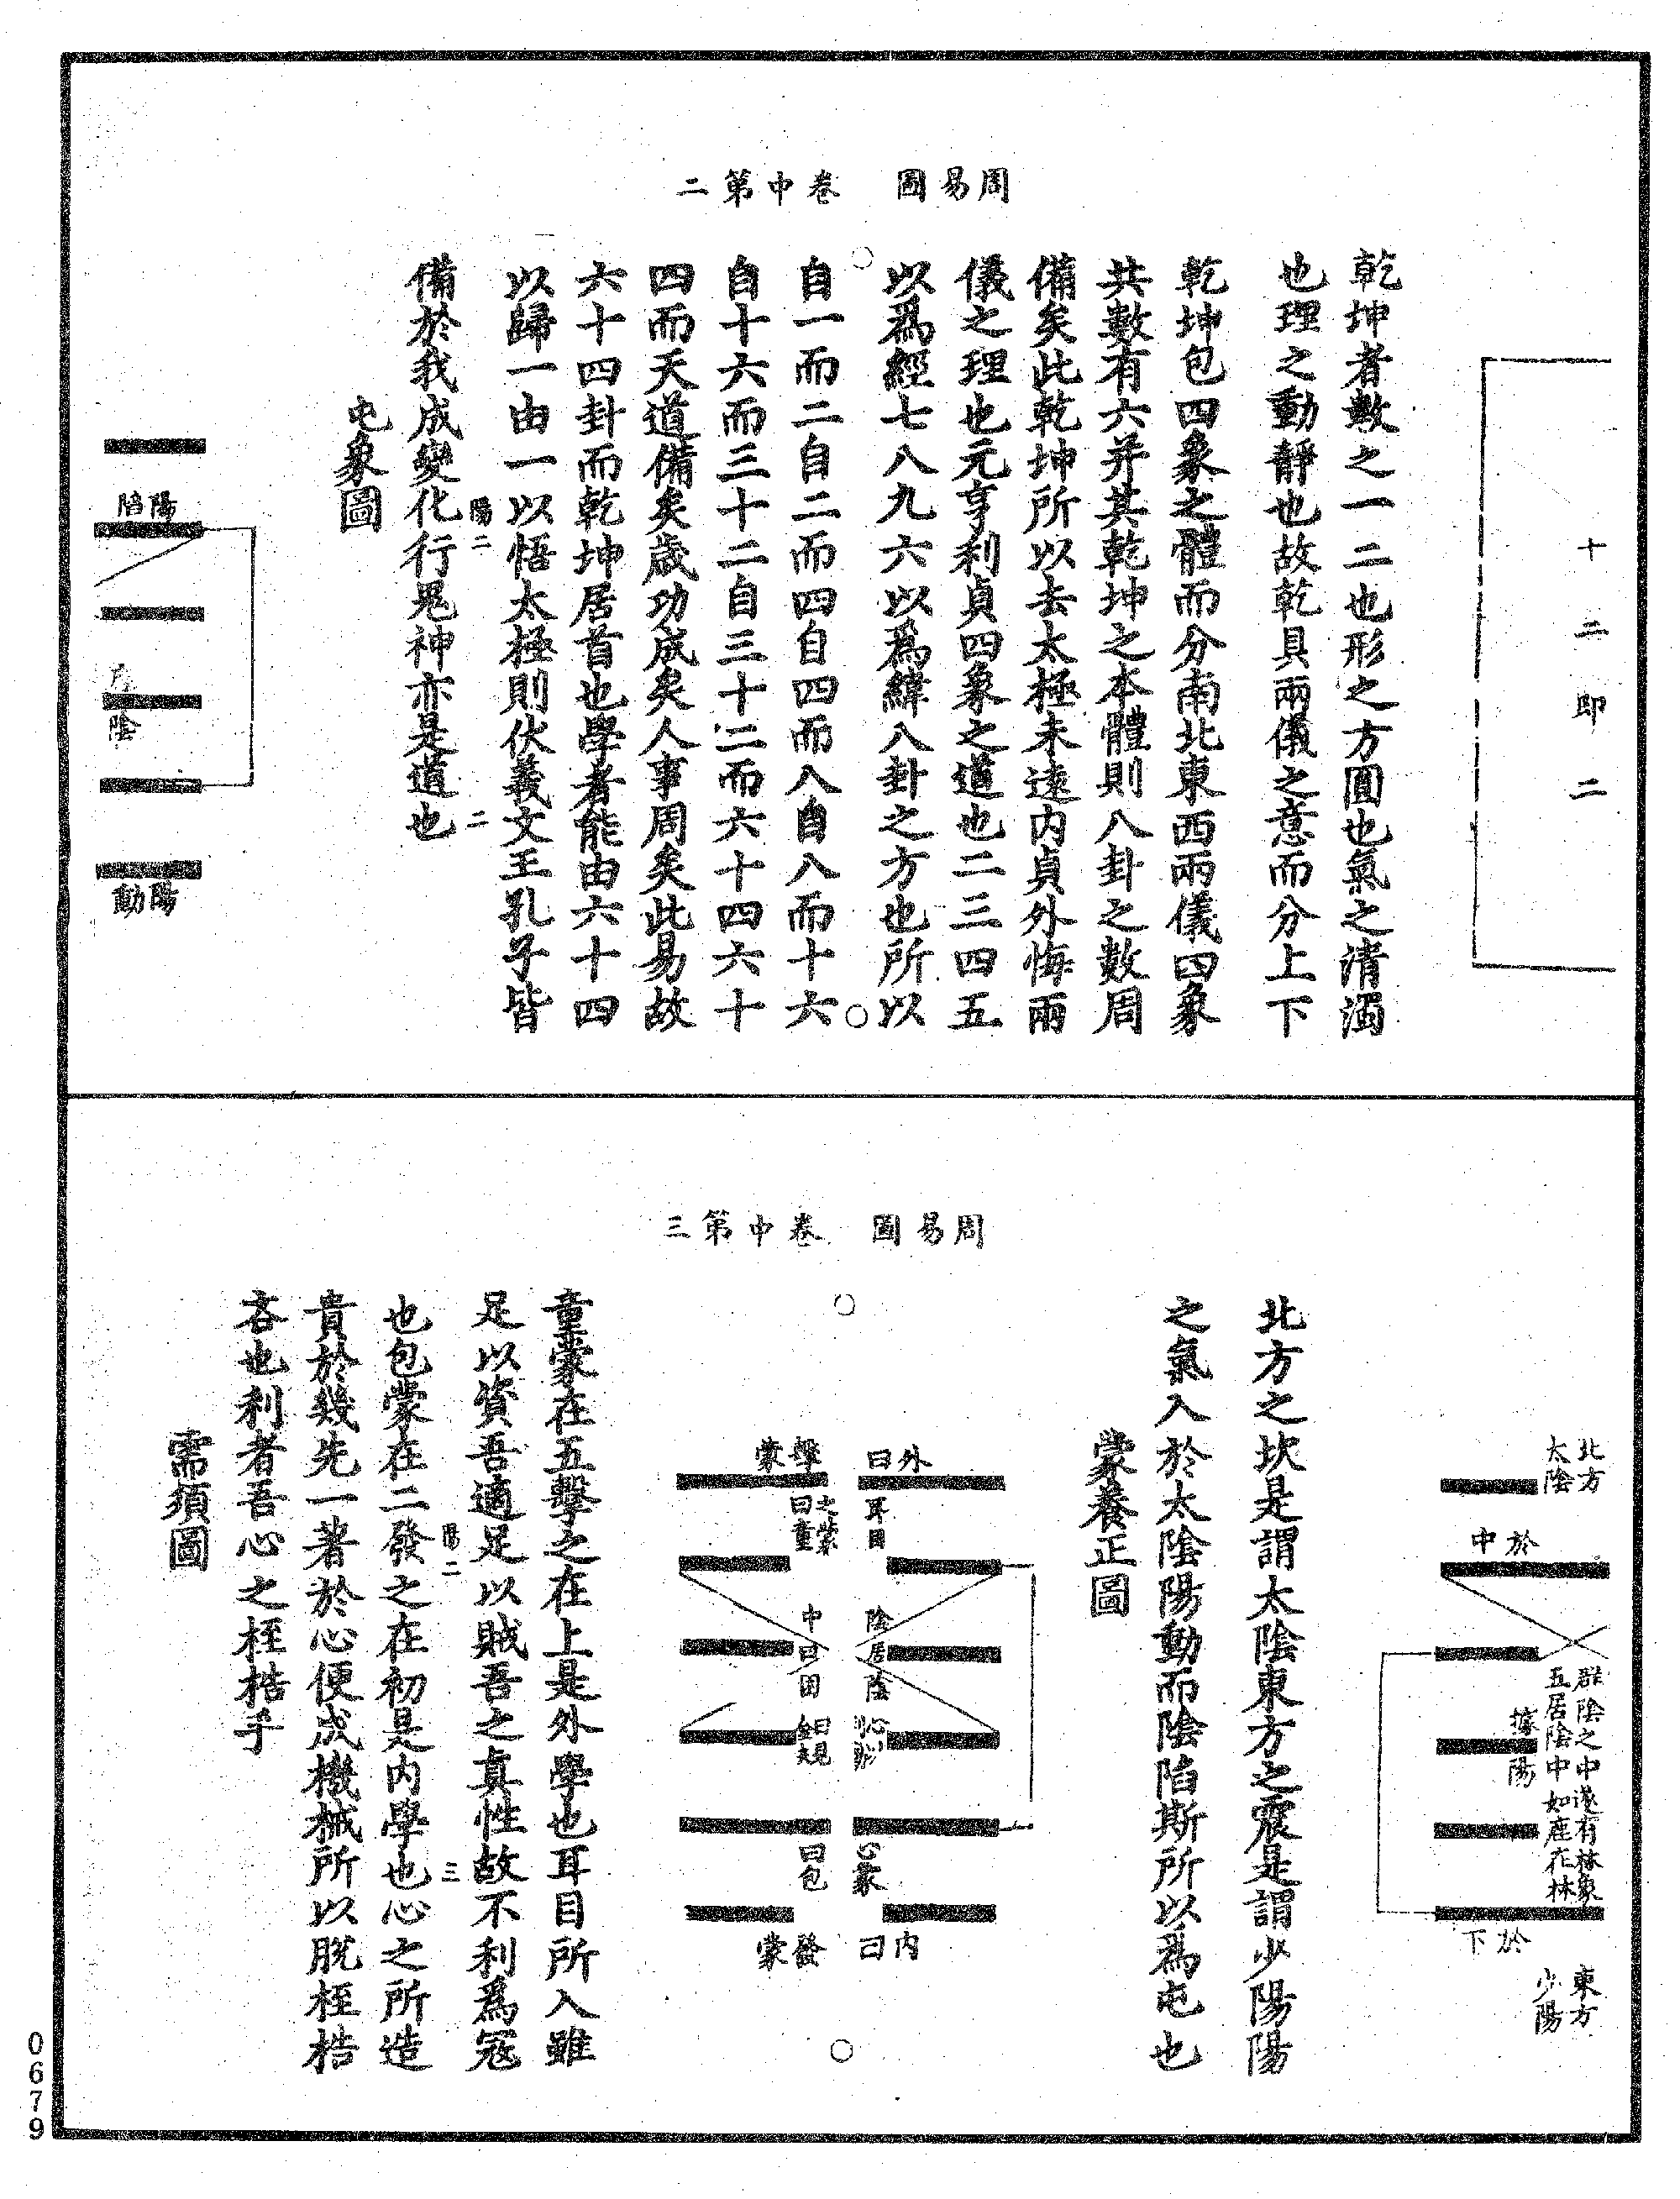 周易圖　卷中第二
十二即二
乾坤者數之一二也形之方圓也氣之清濁
也理之動靜也故乾具兩儀之意而分上下
乾坤包四象之體而分南北東西兩儀四象
共數有六并其乾坤之本體則八卦之數周
備矣此乾坤所以去太極未遠內貞外悔兩
儀之理也元亨利貞四象之道也二三四五
以為經七八九六以為緯八卦之方也所以
自一而二自二而四自四而八自八而十六
自十六而三十二自三十二而六十四六十
四而天道備矣歲功成矣人事周矣此易故
六十四卦而乾坤居首也學者能由六十四
以歸一由一以悟太極則伏羲文王孔子皆
陽二　二
備於我成變化行鬼神亦是道也
屯象圖
陽陷
陰
陽動
周易圖　卷中第三
北方
太陰
於中
群陰之中遂有林象
五居陰中如鹿在林
據陽
於下
東方
少陽
北方之坎是謂太陰東方之震是謂少陽陽
之氣入於太陰陽動而陰陷斯所以為屯也
蒙養正圖
外曰
擊蒙
耳目
曰童
陰居陰
中曰困
曰包
心蒙
內曰
發蒙
童蒙在五擊之在上是外學也耳目所入雖
足以資吾適足以賊吾之真性故不利為寇
陽二　三
也包蒙在二發之在初是內學也心之所造
貴於幾先一著於心便成機械所以脫桎梏
吝也利者吾心之桎梏乎
需須圖
0679